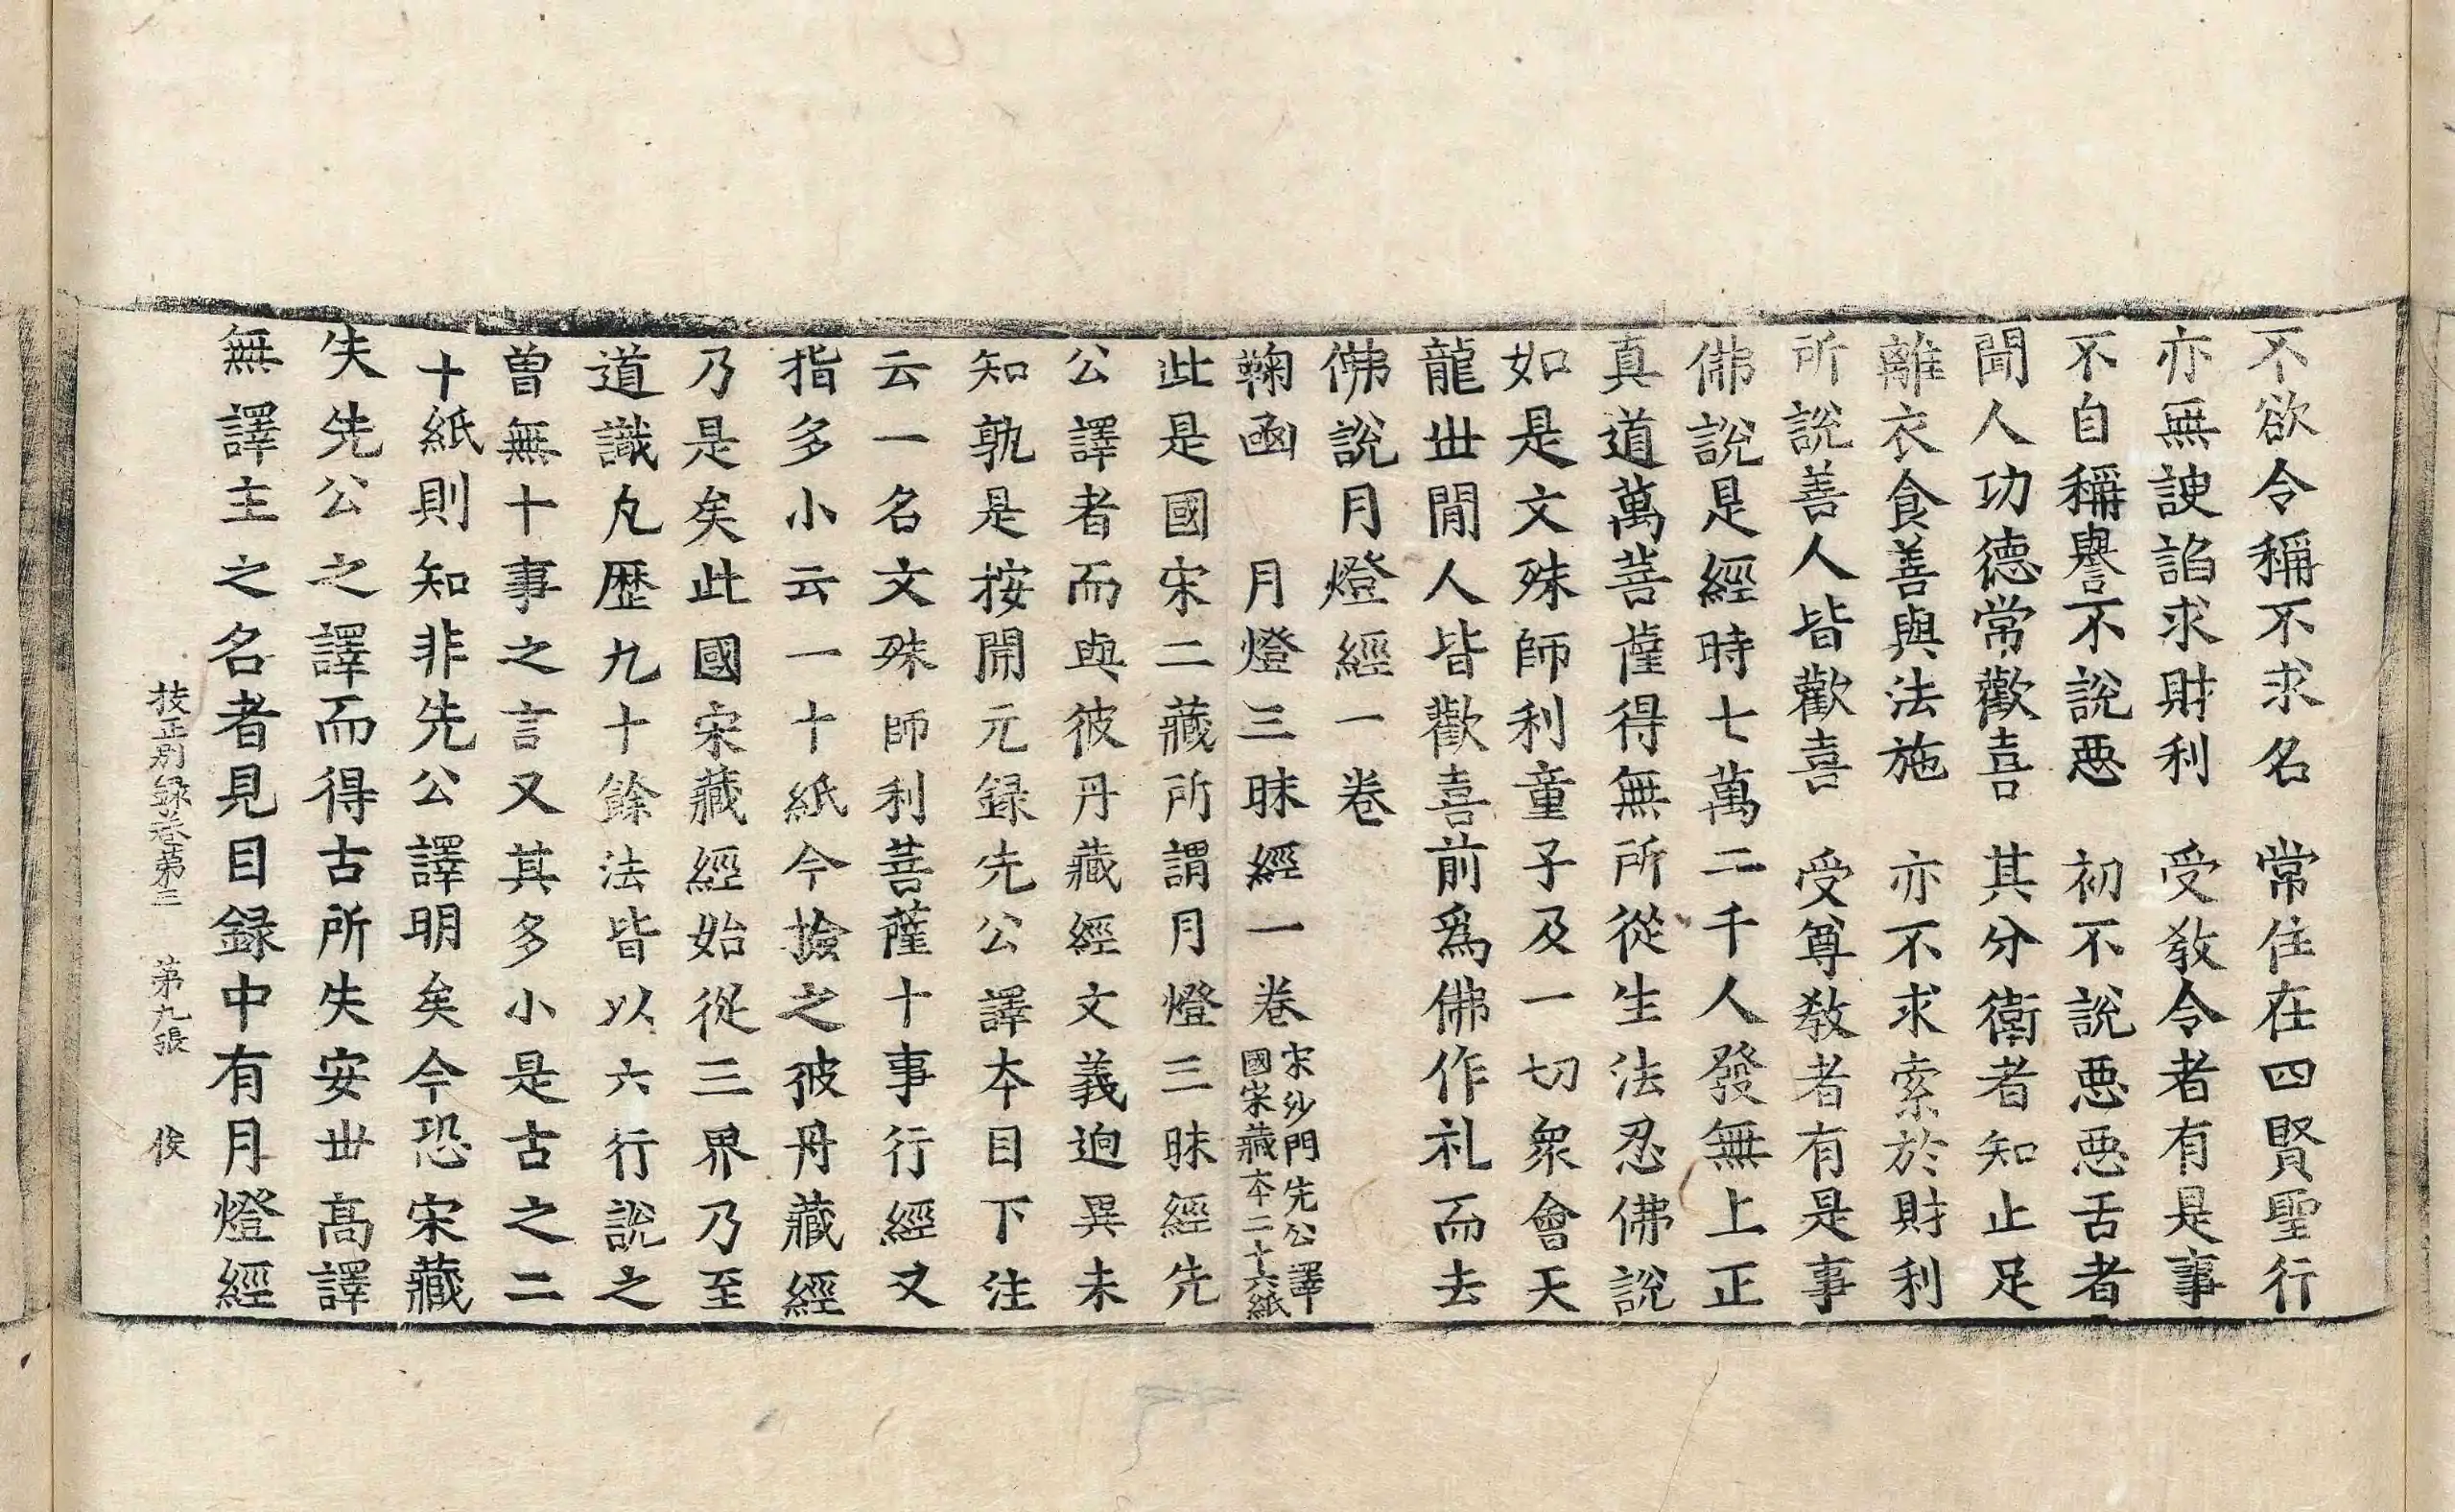 不欲令稱不求名　常住在四賢聖行
亦無諛諂求財利　受教令者有是事
不自稱譽不說惡　初不說惡惡舌者
聞人功德常歡喜　其分衛者知止足
離衣食善與法施　亦不求索於財利
所說善人皆歡喜　受尊教者有是事
佛說是經時七萬二千人發無上正
真道萬菩薩得無所從生法忍佛說
如是文殊師利童子及一切衆會天
龍丗間人皆歡喜前爲佛作礼而去
佛說月燈經一卷
鞠函　月燈三昧經一卷 宋沙門先公譯
國宋藏本二十六紙
此是國宋二藏所謂月燈三昧經先
公譯者而與彼丹藏經文義逈異未
知孰是按開元録先公譯本目下注
云一名文殊師利菩薩十事行經又
指多小云一十紙今撿之彼丹藏經
乃是矣此國宋藏經始從三界乃至
道識凡歷九十餘法皆以六行說之
曾無十事之言又其多小是古之二
十紙則知非先公譯明矣今恐宋藏
失先公之譯而得古所失安丗高譯
無譯主之名者見目録中有月燈經
挍正別録卷第三　第九張　俊